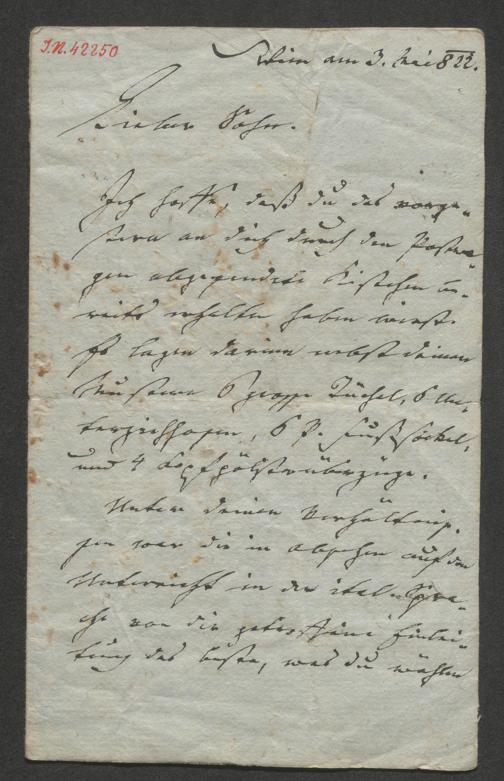 I.N. 42250
Wien am 3. Mai 822.
Lieber Sohn.
Ich hoffe, daß du das vorge-
stern an dich durch den Postwa-
gen abgesendete Kistchen be-
reits erhalten haben wirst.
Es lagen darinn nebst deinen
6 große Tüchel, 6 Un-
terziehhosen, 6 P. Fußsöckel,
und 4 Kopfpölsterüberzüge.
Unter deinen Verhältnis-
sen war die in absehen auf den
Unterricht in der ital. Spra-
che von dir getroffene Einlei-
tung das beste, was du wählen